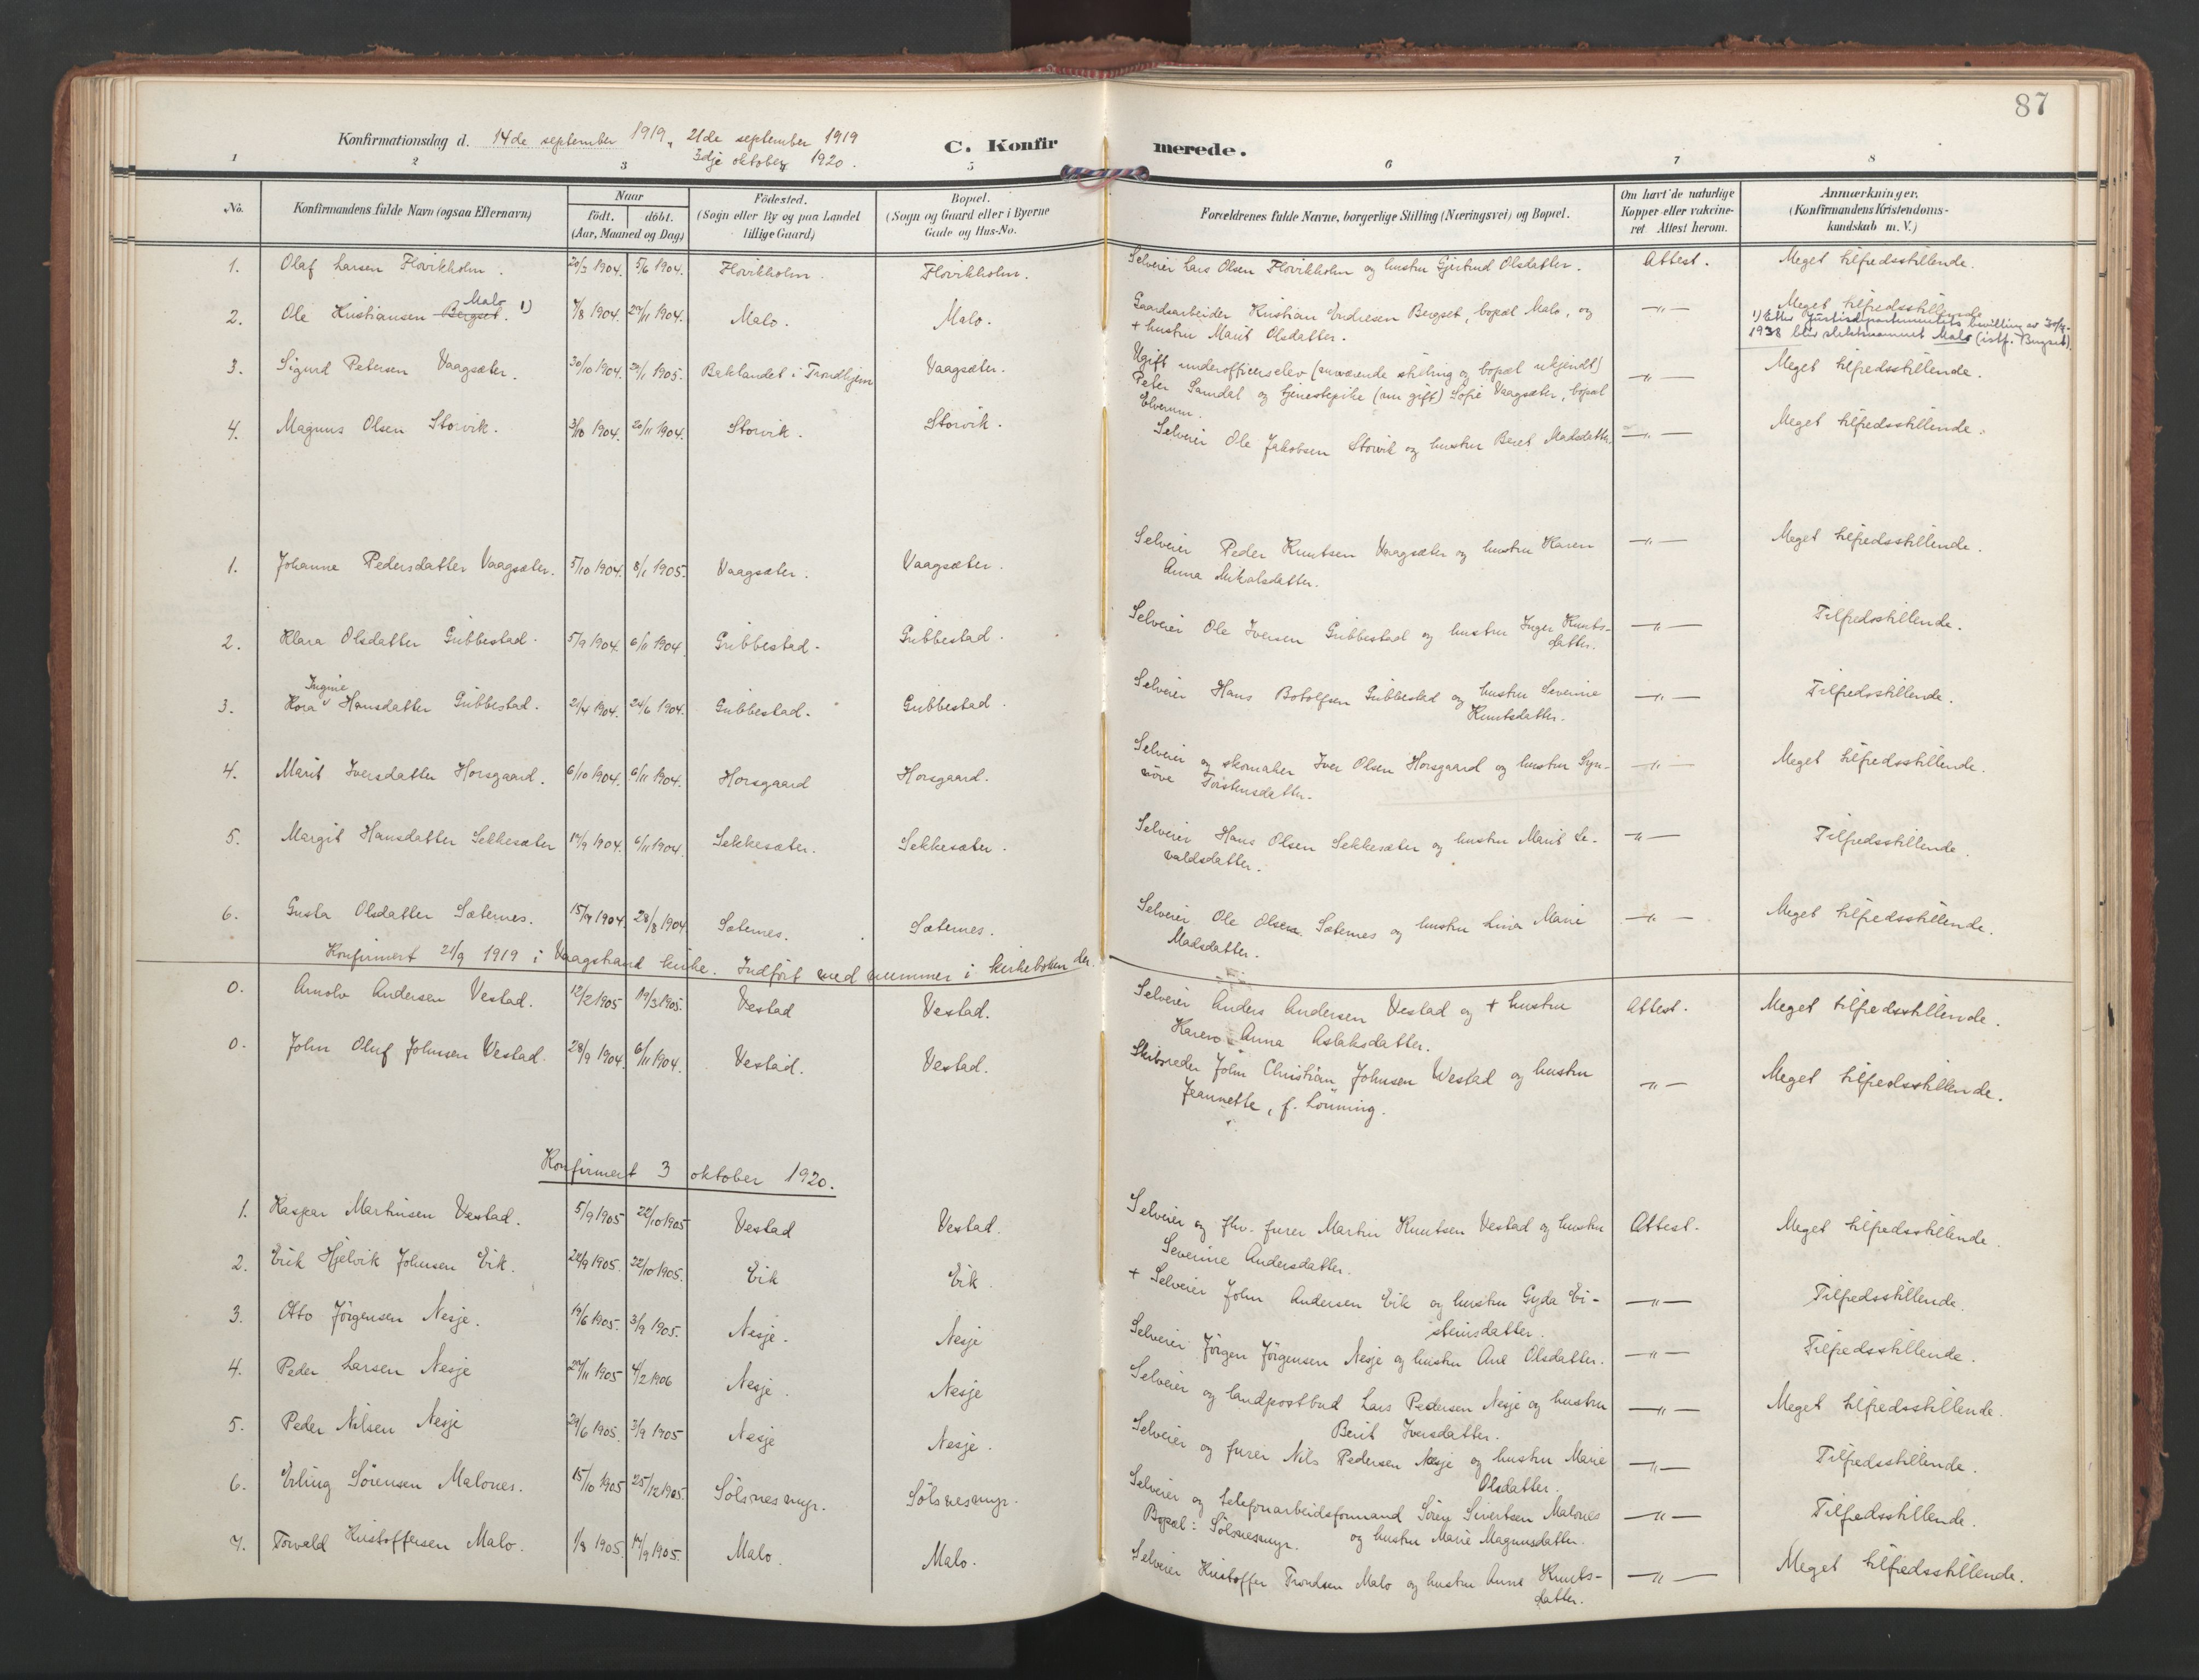 87
Konfirmationsdag d. 14de september 1919, 21de september 1919
3dje oktober 1920.
C. Konfirmerede.
1 2 3 5 6 7 8
No. Konfirmandens fulde Navn (ogsaa Efternavn) Naar født. døbt. (Aar, Maaned og Dag) Födested. (Sogn eller By og paa Landet tillige Gaard) Bopæl. (Sogn og Gaard eller i Byerne Gade og Hus-No. Forældrenes fulde Navne, borgerlige Stilling (Næringsvei) og Bopæl. Om havt de naturlige Kopper eller vakcineret. Attest herom. Anmærkninger. (Konfirmandens Kristendomskundskab m. V.)
1. Olaf Larsen Flovikholm. 20/3 1904. 5/6 1904. Flovikholm. Flovikholm. Selveier Lars Olsen Flovikholm og hustru Gjertrud Olsdatter. Attest. Meget tilfredsstillende.
2. Ole Kristiansen Bergset. Malo 1) 7/8 1904. 27/11 1904. Malo. Malo. Gaardsarbeider Kristian Endresen Bergset, bopæl Malo, og
+ hustru Marit Olsdatter. —"— Meget tilfredsstillende
1) Efter Justisdepartementets bevilling av
1938 blev slektsnavnet Malo (istf. Bergset).
3. Sigurd Petersen Vaagsæter. 30/10 1904. 1905. Baklandet i Trondhjem Vaagsæter. Ugift underofficerselev (nuværende stilling og bopæl ukjendt)
Peter Samdal og tjenestepike (nu gift) Sofie Vaagsæter, bopæl
Elverum. —"— Meget tilfredsstillende.
4. Magnus Olsen Storvik. 3/10 1904. 20/11 1904. Storvik. Storvik. Selveier Ole Jakobsen Storvik og hustru Beret Madsdatter. —"— Meget tilfredsstillende.
1. Johanne Pedersdatter Vaagsæter. 5/10 1904. 8/1 1905. Vaagsæter. Vaagsæter. Selveier Peder Knutsen Vaagsæter og hustru Karen
Anna Mikalsdatter. —"— Meget tilfredsstillende.
2. Klara Olsdatter Gribbestad. 5/9 1904. 6/11 1904. Gribbestad. Gribbestad. Selveier Ole Iversen Gribbestad og hustru Inger Knuts-
datter. —"— Tilfredsstillende.
3. Kora Ingine Hansdatter Gribbestad. 21/4 1904. 24/6 1904. Gribbestad. Gribbestad. Selveier Hans Botolfsen Gribbestad og hustru Severine
Knutsdatter. —"— Tilfredsstillende.
4. Marit Iversdatter Horsgaard. 6/10 1904. 6/11 1904. Horsgaard Horsgaard. Selveier og skomaker Iver Olsen Horsgaard og hustru Syn-
növe Torstensdatter. —"— Meget tilfredsstillende.
5. Margit Hansdatter Sekkesæter 17/9 1904. 6/11 1904. Sekkesæter. Sekkesæter. Selveier Hans Olsen Sekkesæter og hustru Marit Se-
valdsdatter. —"— Tilfredsstillende.
6. Gusta Olsdatter Sæternes. 15/7 1904. 28/8 1904 Sæternes. Sæternes. Selveier Ole Olsen Sæternes og hustru Lina Marie
Madsdatter. —"— Meget tilfredsstillende.
Konfirmert 21/9 1919 i Vaagstrand kirke. Indført med nummer i kirkeboken der.
0. Arnolv Andersen Vestad. 12/2 1905 19/3 1905. Vestad Vestad. Selveier Anders Andersen Vestad og + hustru
Karen Anna Aslaksdatter. Attest. Meget tilfredsstillende.
0. John Oluf Johnsen Westad. 28/9 1904. 6/11 1904. Vestad. Vestad. Skibsreder John Christian Johnsen Westad og hustru
Jeannette, f. Lönning. —"— Meget tilfredsstillende.
Konfirmert 3 oktober 1920.
1. Kaspar Martinsen Vestad. 5/9 1905 22/10 1905 Vestad Vestad. Selveier og fhv. furer Martin Knutsen Vestad og hustru
Severine Andersdatter. Attest. Meget tilfredsstillende.
2. Erik Hjelvik Johnsen Eik. 24/9 1905. 22/10 1905. Eik Eik. + Selveier John Andersen Eik og hustru Gyda Ei-
steinsdatter. —"— Tilfredsstillende.
3. Otto Jørgensen Nesje. 19/6 1905. 3/9 1905. Nesje. Nesje Selveier Jørgen Jørgensen Nesje og hustru Ane Olsdatter. —"— Tilfredsstillende.
4. Peder Larsen Nesje 27/11 1905 4/2 1906 Nesje. Nesje Selveier og landpostbud Lars Pedersen Nesje og hustru
Berit Iversdatter. —"— Meget tilfredsstillende.
5. Peder Nilsen Nesje 29/6 1905. 3/9 1905 Nesje Nesje. Selveier og furer Nils Pedersen Nesje og hustru Marie
Olsdatter. —"— Tilfredsstillende.
6. Erling Sörensen Malones. 15/10 1905 25/12 1905. Sölsnesmyr. Sölsnesmyr. Selveier og telefonarbeidsformand Sören Sivertsen Malones
Bopæl: Sölsnesmyr. og hustru Marie Magnusdatter. —"— Tilfredsstillende.
7. Torvald Kristoffersen Malo. 1/8 1905. 17/9 1905. Malo. Malo. Selveier Kristoffer Trondsen Malo og hustru Anne Knuts-
datter. —"— Meget tilfredsstillende.